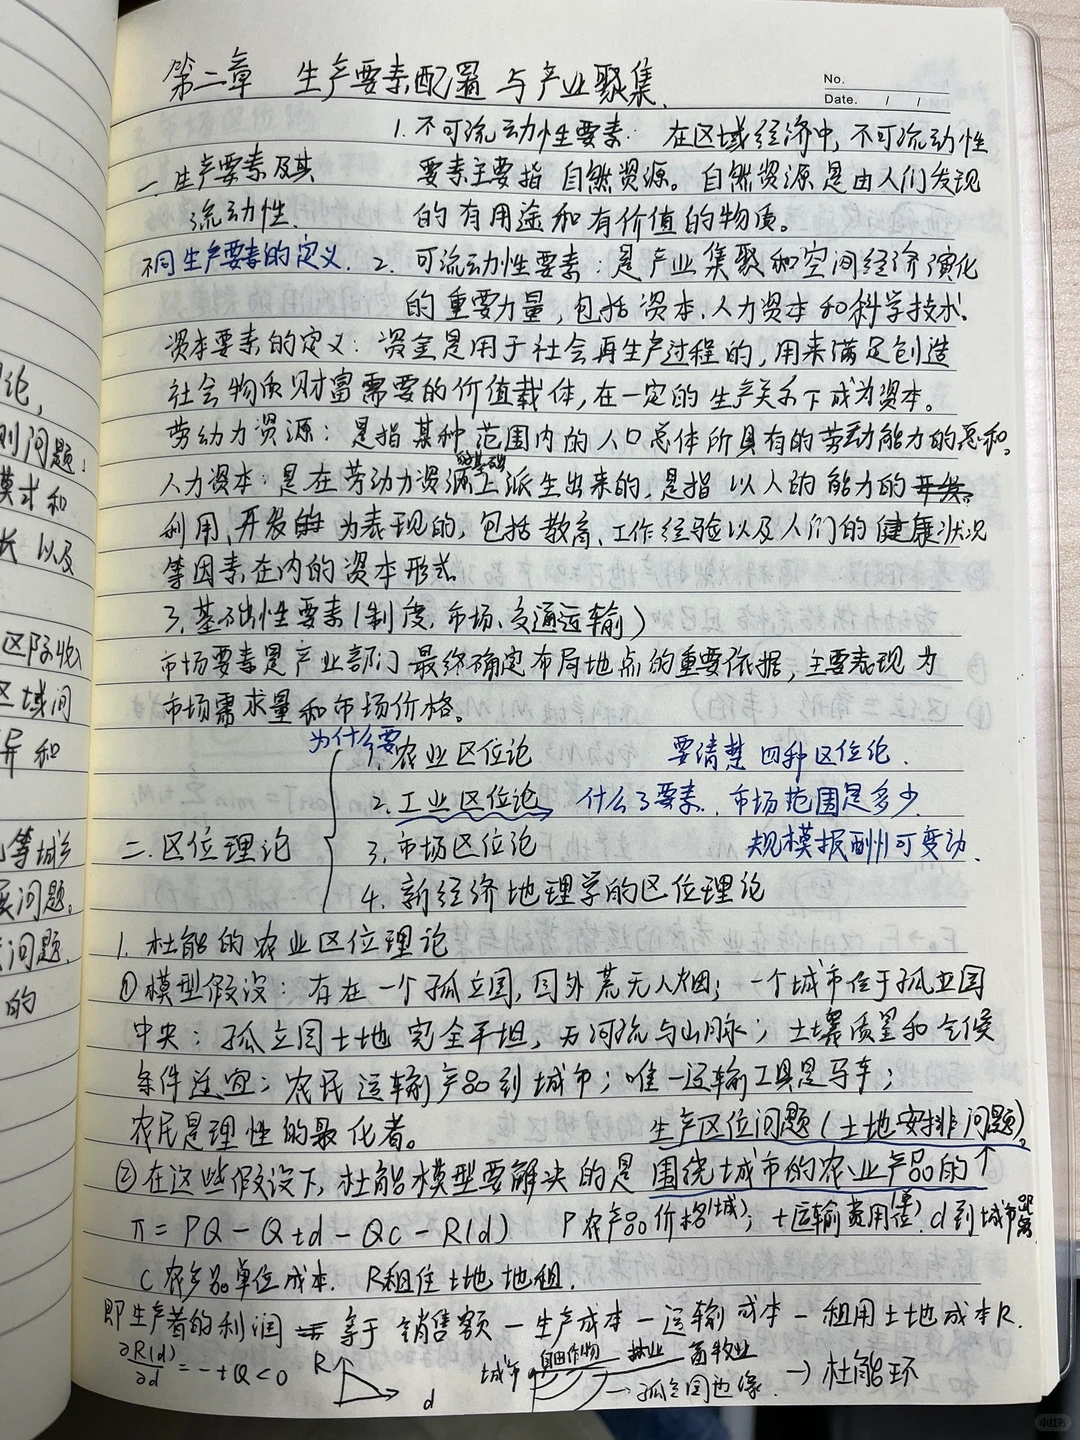 第二章 生产要素配置与产业聚集.
No.
Date. / /
1. 不可流动性要素: 在区域经济中,不可流动性
一 生产要素及其 要素主要指 自然资源。自然资源是由人们发现
流动性. 的有用途和有价值的物质。
不同生产要素的定义. 2. 可流动性要素:是产业集聚和空间经济演化
的重要力量,包括资本、人力资本和科学技术.
资本要素的定义:资金是用于社会再生产过程的,用来满足创造
社会物质财富需要的价值载体,在一定的生产关系下成为资本。
劳动力资源:是指某种范围内的人口总体所具有的劳动能力的总和。
的基础
人力资本:是在劳动力资源上派生出来的,是指以人的能力的
利用、开发 为表现的,包括教育、工作经验以及人们的健康状况
等因素在内的资本形式.
3. 基础性要素(制度、市场、交通运输)
市场要素是产业部门最终确定布局地点的重要依据,主要表现为
市场需求量和市场价格。
为什么要
1. 农业区位论 要清楚 四种区位论.
2. 工业区位论 什么了要素. 市场范围是多少
二. 区位理论 3. 市场区位论 规模报酬可变动.
4. 新经济地理学的区位理论
1. 杜能的农业区位理论
①模型假设:存在一个孤立国,国外荒无人烟;一个城市位于孤立国
中央;孤立国土地完全平坦,无河流与山脉;土壤质量和气候
条件适宜;农民运输产品到城市;唯一运输工具是马车;
农民是理性的最化者。 生产区位问题(土地安排问题)。
②在这些假设下,杜能模型要解决的是 围绕城市的农业产品的↑
π = PQ - Qtd - Qc - R(d) P农产品价格(城); t运输费用(单位) d到城市距离
C 农产品单位成本. R租住土地地租.
即生产者的利润 等于 销售额-生产成本-运输成本-租用土地成本R.
∂R(d)/∂d = -tQ < 0 R d 城市 自由作物 林业 畜牧业 → 杜能环
→孤立国边缘.
论,
则问题.
模式和
长以及
区际收
区域间
异和
等城乡
展问题。
问题.
的
小红书